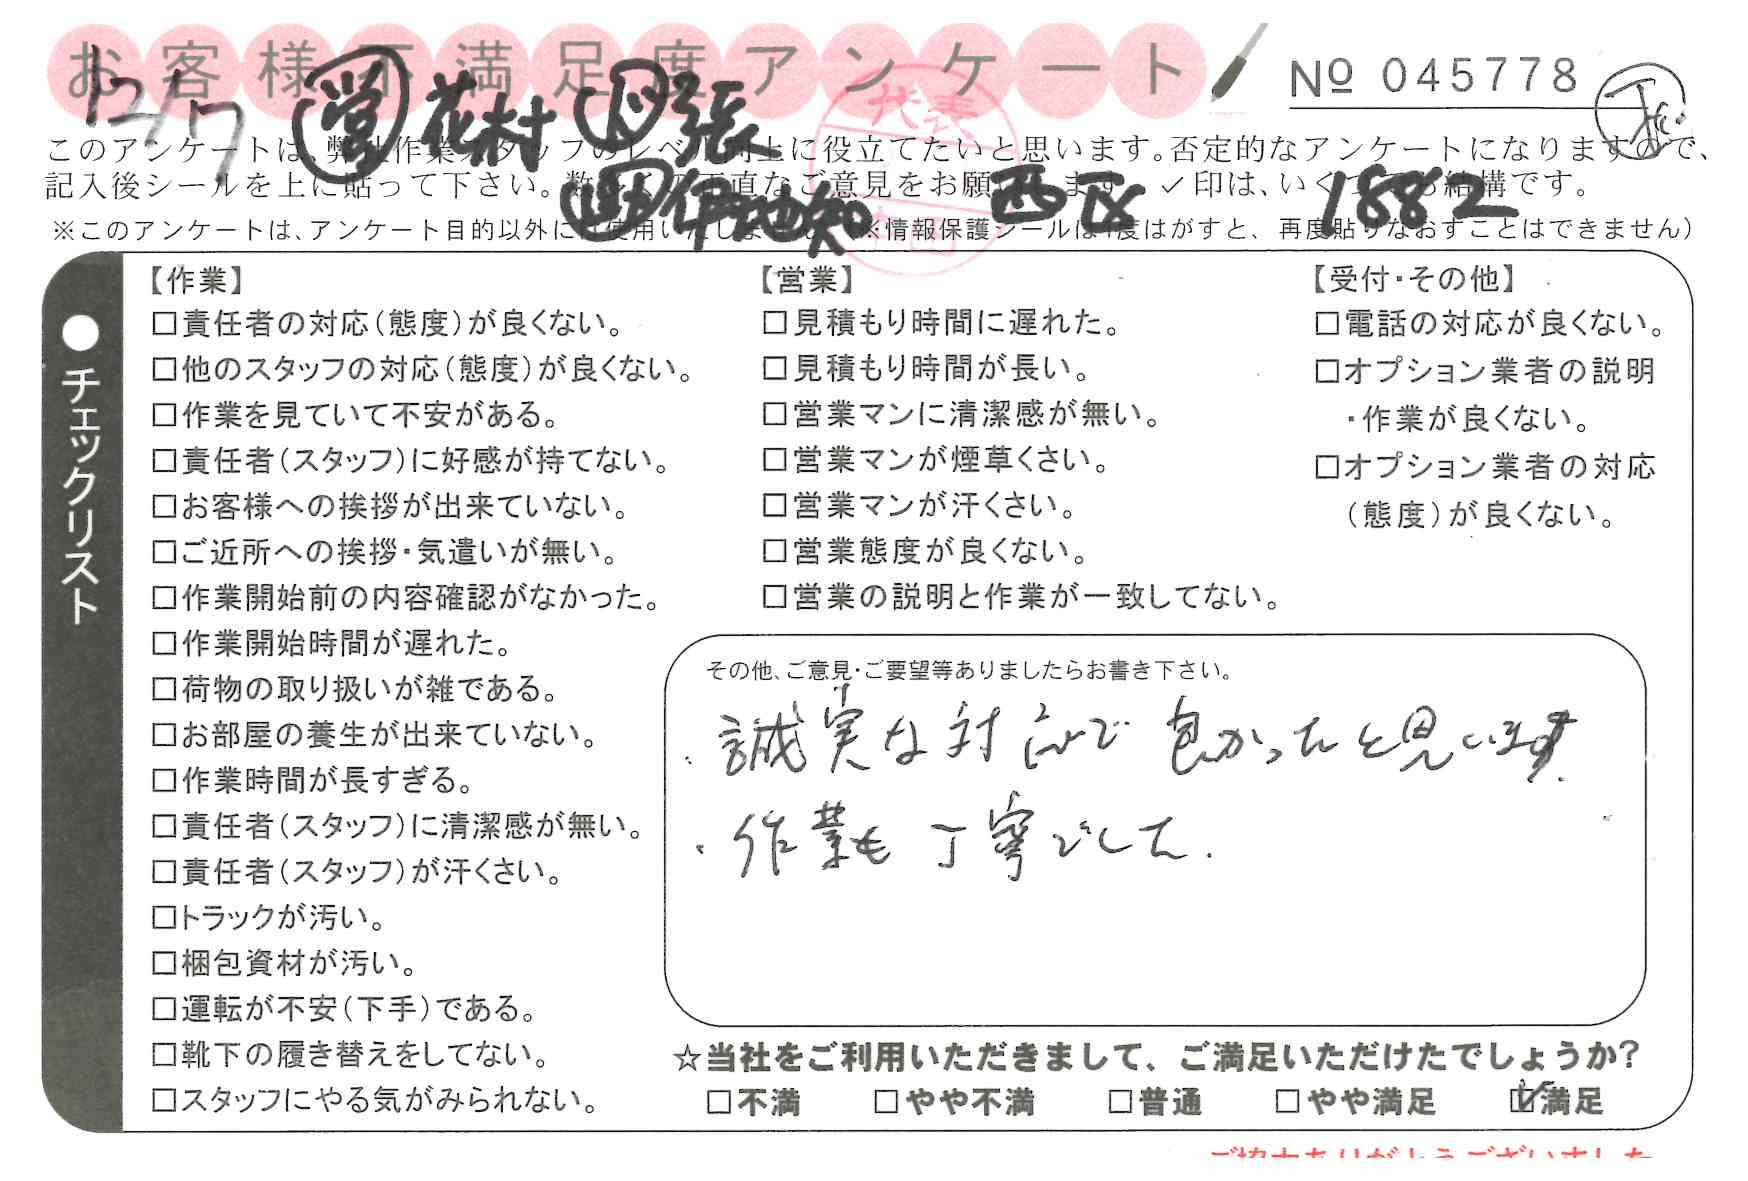 お客様不満足度アンケート
№ 045778
12/7 営 花村 張
伊地知 西区 1882
代表
このアンケートは、弊社作業スタッフのレベル向上に役立てたいと思います。否定的なアンケートになりますので、
記入後シールを上に貼って下さい。数多くの正直なご意見をお願いします。✓印は、いくつでも結構です。
※このアンケートは、アンケート目的以外には使用いたしません。(※情報保護シールは1度はがすと、再度貼りなおすことはできません)
●チェックリスト
【作業】
□責任者の対応(態度)が良くない。
□他のスタッフの対応(態度)が良くない。
□作業を見ていて不安がある。
□責任者(スタッフ)に好感が持てない。
□お客様への挨拶が出来ていない。
□ご近所への挨拶・気遣いが無い。
□作業開始前の内容確認がなかった。
□作業開始時間が遅れた。
□荷物の取り扱いが雑である。
□お部屋の養生が出来ていない。
□作業時間が長すぎる。
□責任者(スタッフ)に清潔感が無い。
□責任者(スタッフ)が汗くさい。
□トラックが汚い。
□梱包資材が汚い。
□運転が不安(下手)である。
□靴下の履き替えをしてない。
□スタッフにやる気がみられない。
【営業】
□見積もり時間に遅れた。
□見積もり時間が長い。
□営業マンに清潔感が無い。
□営業マンが煙草くさい。
□営業マンが汗くさい。
□営業態度が良くない。
□営業の説明と作業が一致してない。
【受付・その他】
□電話の対応が良くない。
□オプション業者の説明
・作業が良くない。
□オプション業者の対応
(態度)が良くない。
その他、ご意見・ご要望等ありましたらお書き下さい。
・誠実な対応で良かったと思います
・作業も丁寧でした.
☆当社をご利用いただきまして、ご満足いただけたでしょうか?
□不満 □やや不満 □普通 □やや満足 ☑満足
ご協力ありがとうございました